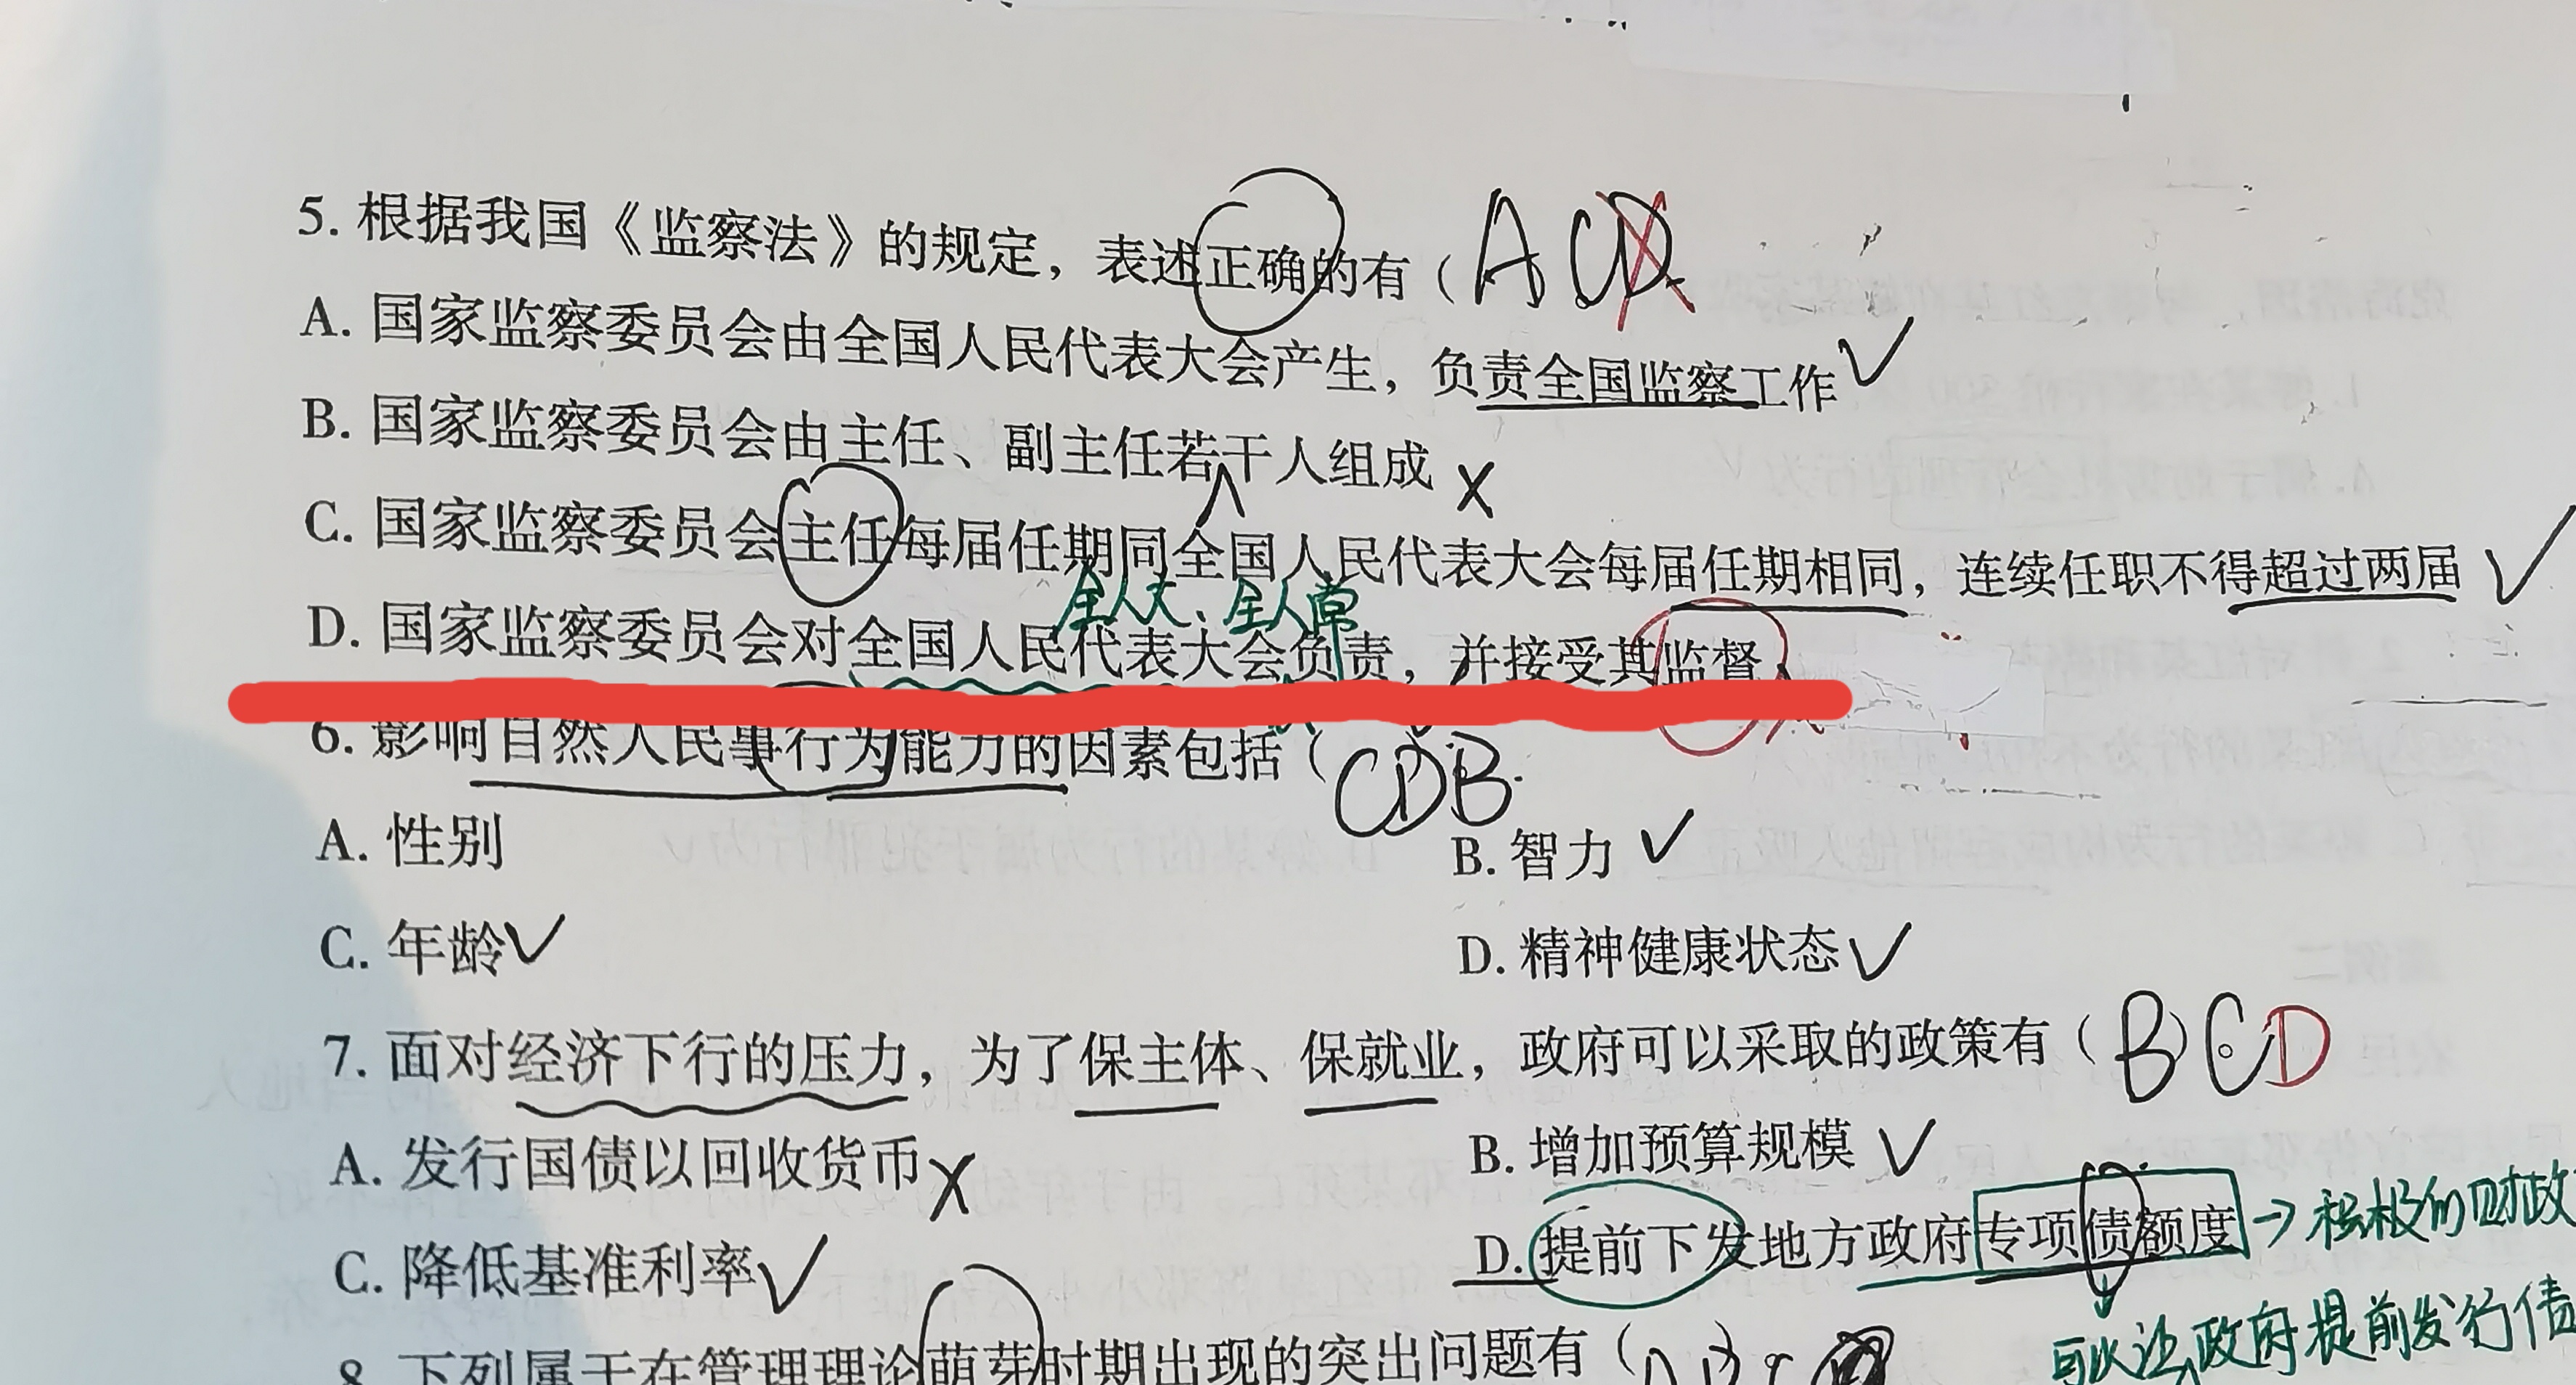 5. 根据我国《监察法》的规定，表述正确的有（ A C D
A. 国家监察委员会由全国人民代表大会产生，负责全国监察工作 ✓
B. 国家监察委员会由主任、副主任若干人组成 ×
C. 国家监察委员会主任每届任期同全国人民代表大会每届任期相同，连续任职不得超过两届 ✓
全人大、全人常
D. 国家监察委员会对全国人民代表大会负责，并接受其监督
6. 影响自然人民事行为能力的因素包括（ CDB
A. 性别
B. 智力 ✓
C. 年龄 ✓
D. 精神健康状态 ✓
7. 面对经济下行的压力，为了保主体、保就业，政府可以采取的政策有（ B）C D
A. 发行国债以回收货币 ×
B. 增加预算规模 ✓
C. 降低基准利率 ✓
D. 提前下发地方政府专项债额度 → 积极的财政
可以让政府提前发行债
8. 下列属于在管理理论萌芽时期出现的突出问题有（